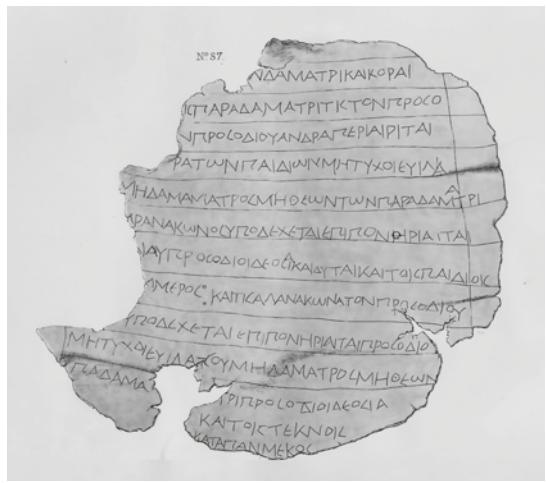 Nº 87.
ΝΔΑΜΑΤΡΙΚΑΙΚΟΡΑΙ
ΙϹΠΑΡΑΔΑΜΑΤΡΙΤΙΚΤΟΝΠΡΟϹΟ
ΝΠΡΟϹΟΔΙΟΥΑΝΔΡΑΠΕΡΙΑΙΡΙΤΑΙ
ΡΑΤΩΝΠΑΙΔΙΩΝΜΗΤΥΧΟΙΕΥΙΛΑ
ΜΗΔΑΜΑΜΑΤΡΟϹΜΗΘΕΩΝΤΩΝΠΑΡΑΔΑΜΑΤΡΙ
ΑΡΑΝΑΚΩΝΟϹΥΠΟΔΕΧΕΤΑΙΕΠΙΠΟΝΗΡΙΑΙΤΑΙ
ΙΑΥΠΡΟϹΟΔΙΟΙΔΕΟϹΙΑΚΑΙΑΥΤΑΙΚΑΙΤΟΙϹΠΑΙΔΙΟΙϹ
ΑΜΕΡΟϹ : ΚΑΙΤΙϹΑΛΑΝΑΚΩΝΑΤΟΝΠΡΟϹΟΔΙΟΥ
ΥΠΟΔΕΧΕΤΑΙΕΠΙΠΟΝΗΡΙΑΙΤΑΙΠΡΟϹΟΔΙΟ
ΜΗΤΥΧΟΙΕΥΙΛΑΤΟΥΜΗΔΑΜΑΤΡΟϹΜΗΘΕΩΝ
ΠΑΔΑΜΑ ΤΡΙΠΡΟϹΟΔΙΟΙΔΕΟϹΙΑ
ΚΑΙΤΟΙϹΤΕΚΝΟΙϹ
ΚΑΤΑΠΑΝΜΕΚΟϹ